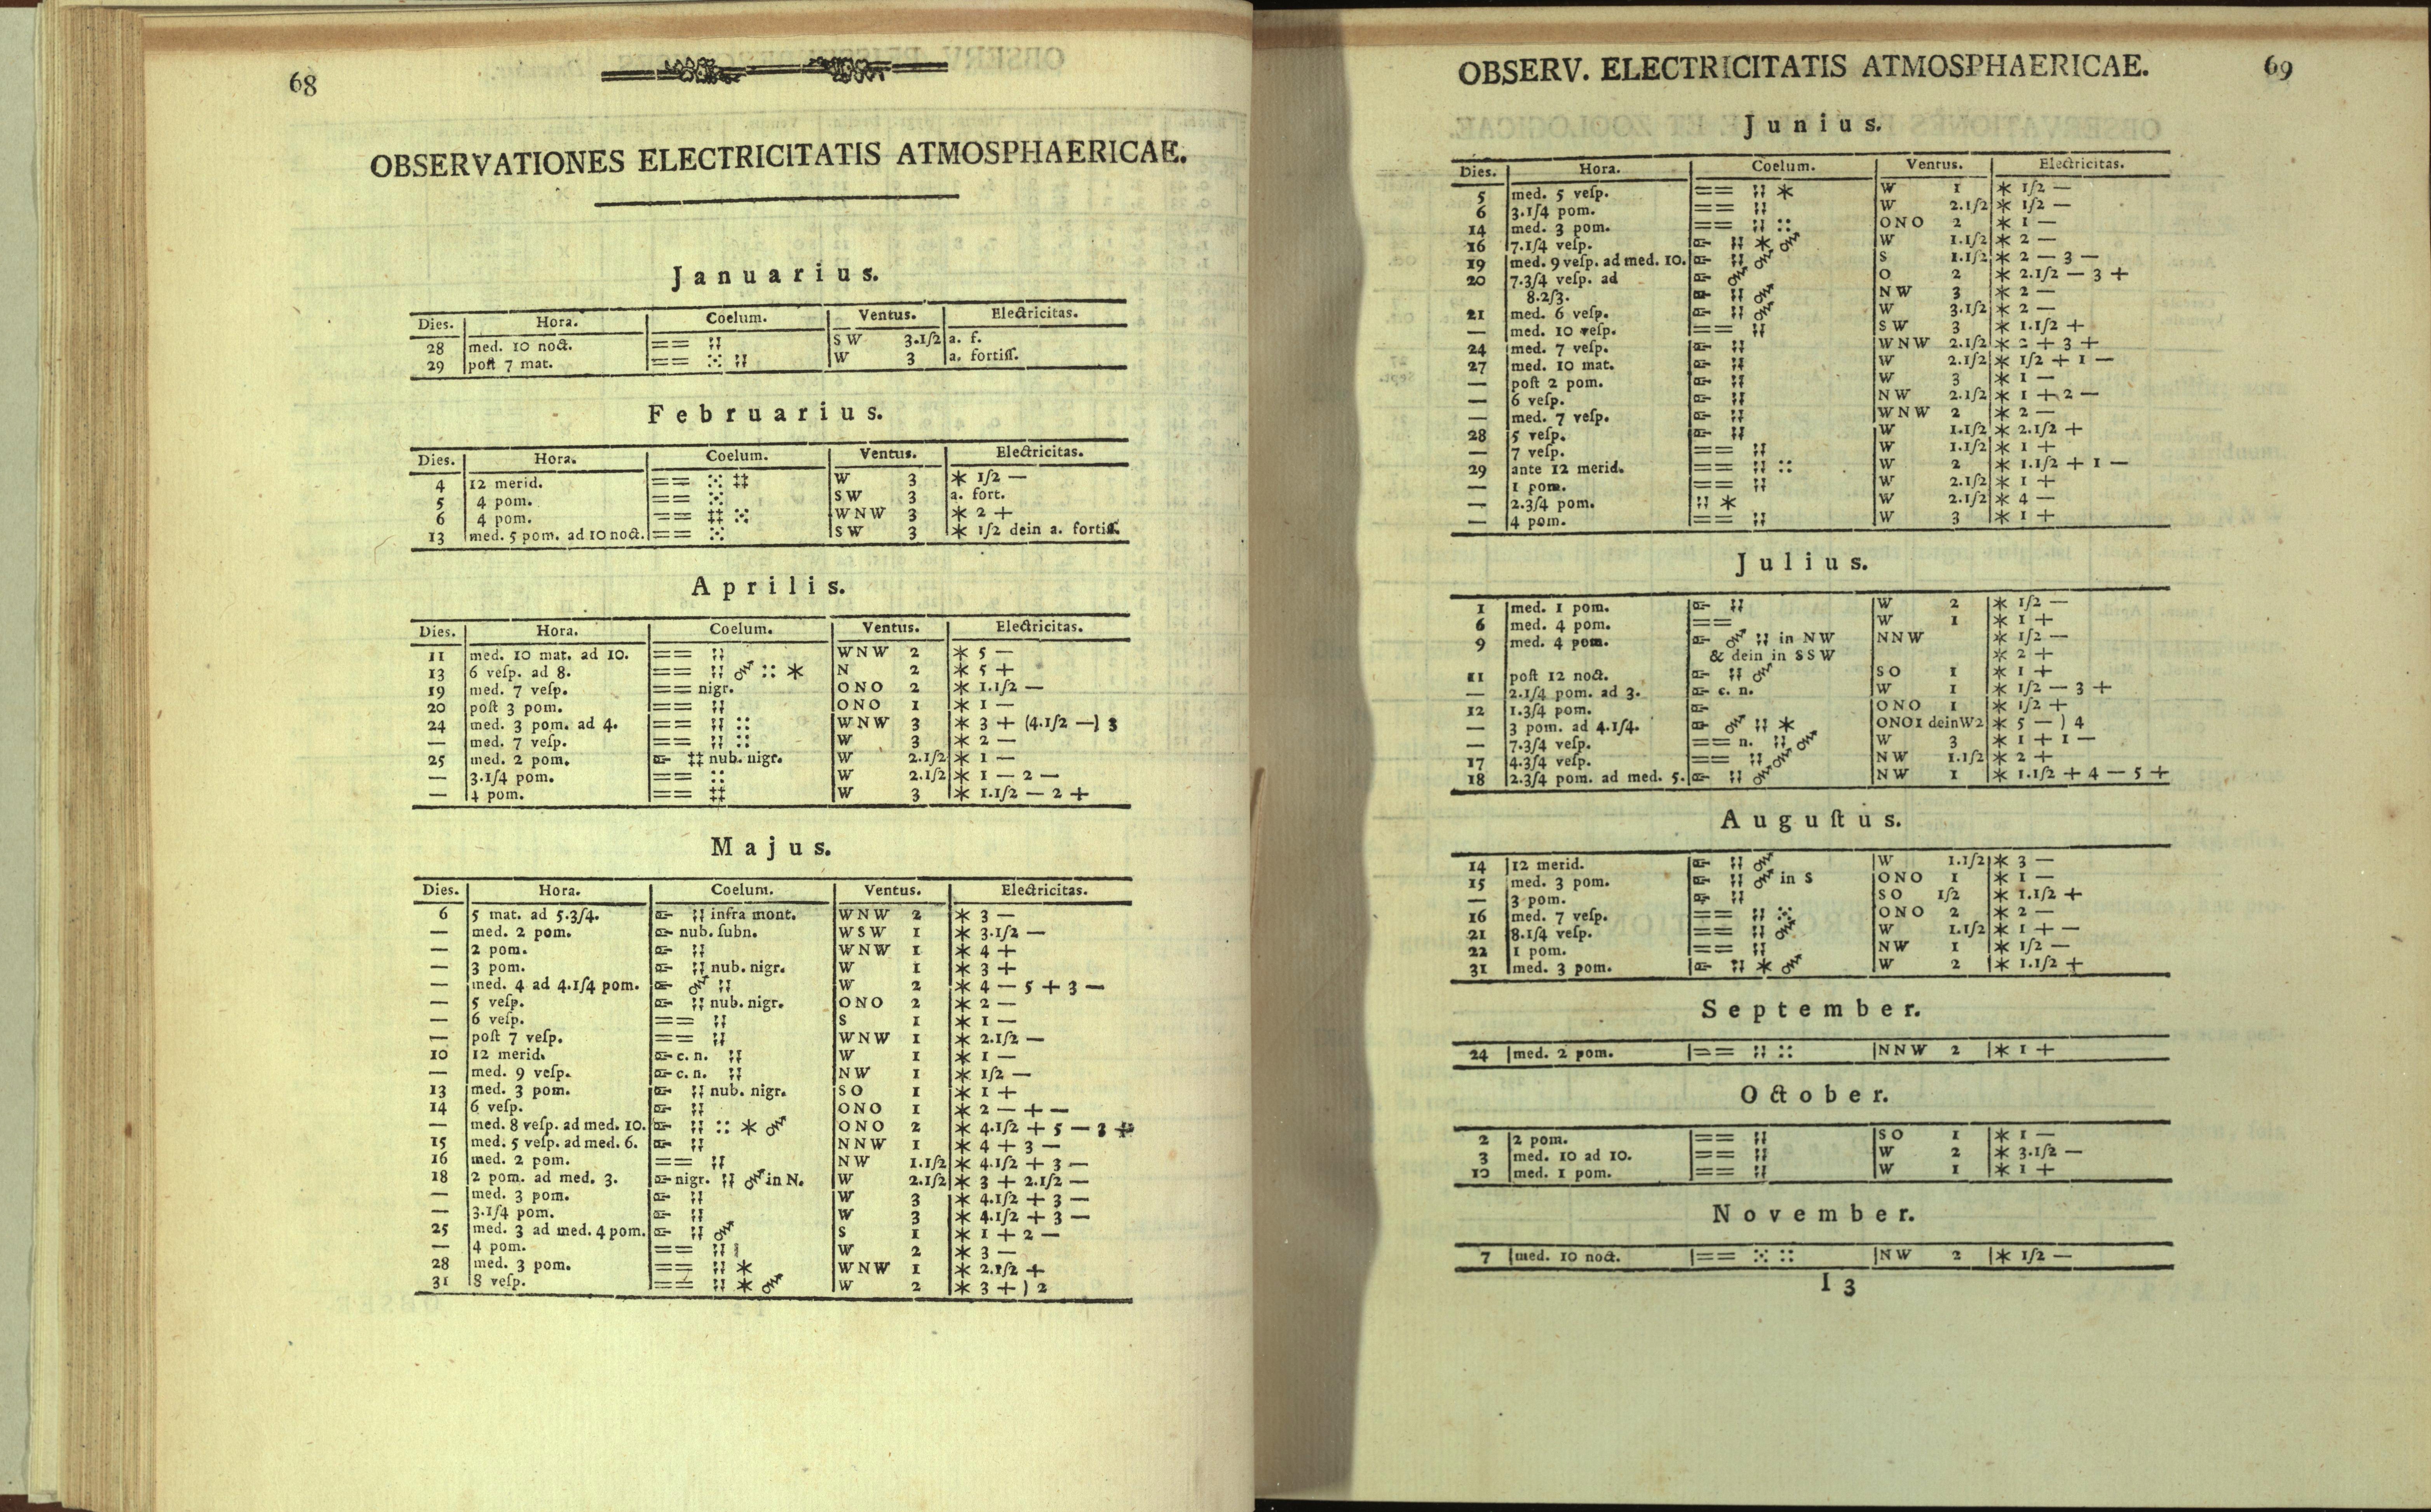 68
OBSERVATIONES ELECTRICITATIS ATMOSPHAERICAE.
Januarius.
Dies. Hora. Coelum. Ventus. Electricitas.
28 med. 10 noct. == ¦¦ SW 3.1/2 a. f.
29 poſt 7 mat. == ⁙ ¦¦ W 3 a. fortiſſ.
Februarius.
Dies. Hora. Coelum. Ventus. Electricitas.
4 12 merid. == ⁙ ‡‡ W 3 * 1/2 —
5 4 pom. == ⁙ SW 3 a. fort.
6 4 pom. == ‡‡ ⁙ WNW 3 * 2 +
13 med. 5 pom. ad 10 noct. == ⁙ SW 3 * 1/2 dein a. fortiſſ.
Aprilis.
Dies. Hora. Coelum. Ventus. Electricitas.
11 med. 10 mat. ad 10. == ¦¦ WNW 2 * 5 —
13 6 veſp. ad 8. == ¦¦ :: * N 2 * 5 +
19 med. 7 veſp. == nigr. ONO 2 * 1.1/2 —
20 poſt 3 pom. == ¦¦ ONO 1 * 1 —
24 med. 3 pom. ad 4. == ¦¦ :: WNW 3 * 3 + (4.1/2 —) 3
— med. 7 veſp. == ¦¦ :: W 3 * 2 —
25 med. 2 pom. ‡‡ nub. nigr. W 2.1/2 * 1 —
— 3.1/4 pom. == :: W 2.1/2 * 1 — 2 —
— 4 pom. == ‡‡ W 3 * 1.1/2 — 2 +
Majus.
Dies. Hora. Coelum. Ventus. Electricitas.
6 5 mat. ad 5.3/4. ¦¦ infra mont. WNW 2 * 3 —
— med. 2 pom. nub. ſubn. WSW 1 * 3.1/2 —
— 2 pom. ¦¦ WNW 1 * 4 +
— 3 pom. ¦¦ nub. nigr. W 1 * 3 +
— med. 4 ad 4.1/4 pom. ¦¦ W 2 * 4 — 5 + 3 —
— 5 veſp. ¦¦ nub. nigr. ONO 2 * 2 —
— 6 veſp. == ¦¦ S 1 * 1 —
— poſt 7 veſp. == ¦¦ WNW 1 * 2.1/2 —
10 12 merid. c. n. ¦¦ W 1 * 1 —
— med. 9 veſp. c. n. ¦¦ NW 1 * 1/2 —
13 med. 3 pom. ¦¦ nub. nigr. SO 1 * 1 +
14 6 veſp. ¦¦ ONO 1 * 2 — + —
— med. 8 veſp. ad med. 10. ¦¦ :: * ONO 2 * 4.1/2 + 5 — 3 +
15 med. 5 veſp. ad med. 6. ¦¦ NNW 1 * 4 + 3 —
16 med. 2 pom. == ¦¦ NW 1.1/2 * 4.1/2 + 3 —
18 2 pom. ad med. 3. nigr. ¦¦ in N. W 2.1/2 * 3 + 2.1/2 —
— med. 3 pom. ¦¦ W 3 * 4.1/2 + 3 —
— 3.1/4 pom. ¦¦ W 3 * 4.1/2 + 3 —
25 med. 3 ad med. 4 pom. ¦¦ S 1 * 1 + 2 —
— 4 pom. == ¦¦ W 2 * 3 —
28 med. 3 pom. == ¦¦ * WNW 1 * 2.1/2 +
31 8 veſp. == ¦¦ * W 2 * 3 + ) 2
OBSERV. ELECTRICITATIS ATMOSPHAERICAE. 69
Junius.
Dies. Hora. Coelum. Ventus. Electricitas.
5 med. 5 veſp. == ¦¦ * W 1 * 1/2 —
6 3.1/4 pom. == ¦¦ W 2.1/2 * 1/2 —
14 med. 3 pom. == ¦¦ :: ONO 2 * 1 —
16 7.1/4 veſp. ¦¦ * W 1.1/2 * 2 —
19 med. 9 veſp. ad med. 10. ¦¦ S 1.1/2 * 2 — 3 —
20 7.3/4 veſp. ad O 2 * 2.1/2 — 3 +
8.2/3. ¦¦ NW 3 * 2 —
21 med. 6 veſp. ¦¦ W 3.1/2 * 2 —
— med. 10 veſp. == ¦¦ SW 3 * 1.1/2 +
24 med. 7 veſp. ¦¦ WNW 2.1/2 * 2 + 3 +
27 med. 10 mat. ¦¦ W 2.1/2 * 1/2 + 1 —
— poſt 2 pom. ¦¦ W 3 * 1 —
— 6 veſp. ¦¦ NW 2.1/2 * 1 + 2 —
— med. 7 veſp. ¦¦ WNW 2 * 2 —
28 5 veſp. ¦¦ W 1.1/2 * 2.1/2 +
— 7 veſp. == ¦¦ W 1.1/2 * 1 +
29 ante 12 merid. == ¦¦ :: W 2 * 1.1/2 + 1 —
— 1 pom. == ¦¦ W 2.1/2 * 1 +
— 2.3/4 pom. ¦¦ * W 2.1/2 * 4 —
— 4 pom. == ¦¦ W 3 * 1 +
Julius.
1 med. 1 pom. ¦¦ W 2 * 1/2 —
6 med. 4 pom. == W 1 * 1 +
9 med. 4 pom. ¦¦ in NW NNW * 1/2 —
& dein in SSW * 2 +
11 poſt 12 noct. ¦¦ SO 1 * 1 +
— 2.1/4 pom. ad 3. c. n. W 1 * 1/2 — 3 +
12 1.3/4 pom. ONO 1 * 1/2 +
— 3 pom. ad 4.1/4. ¦¦ * ONO1 dein W2 * 5 — ) 4
— 7.3/4 veſp. == n. ¦¦ W 3 * 1 + 1 —
17 4.3/4 veſp. == ¦¦ NW 1.1/2 * 2 +
18 2.3/4 pom. ad med. 5. ¦¦ NW 1 * 1.1/2 + 4 — 5 +
Auguſtus.
14 12 merid. ¦¦ W 1.1/2 * 3 —
15 med. 3 pom. ¦¦ in S ONO 1 * 1 —
— 3 pom. ¦¦ SO 1/2 * 1.1/2 +
16 med. 7 veſp. == ¦¦ ⁙ ONO 2 * 2 —
21 8.1/4 veſp. == ¦¦ W 1.1/2 * 1 + —
22 1 pom. == ¦¦ NW 1 * 1/2 —
31 med. 3 pom. ¦¦ * W 2 * 1.1/2 +
September.
24 med. 2 pom. == ¦¦ :: NNW 2 * 1 +
October.
2 2 pom. == ¦¦ SO 1 * 1 —
3 med. 10 ad 10. == ¦¦ W 2 * 3.1/2 —
10 med. 1 pom. == ¦¦ W 1 * 1 +
November.
7 med. 10 noct. == ⁙ :: NW 2 * 1/2 —
I 3